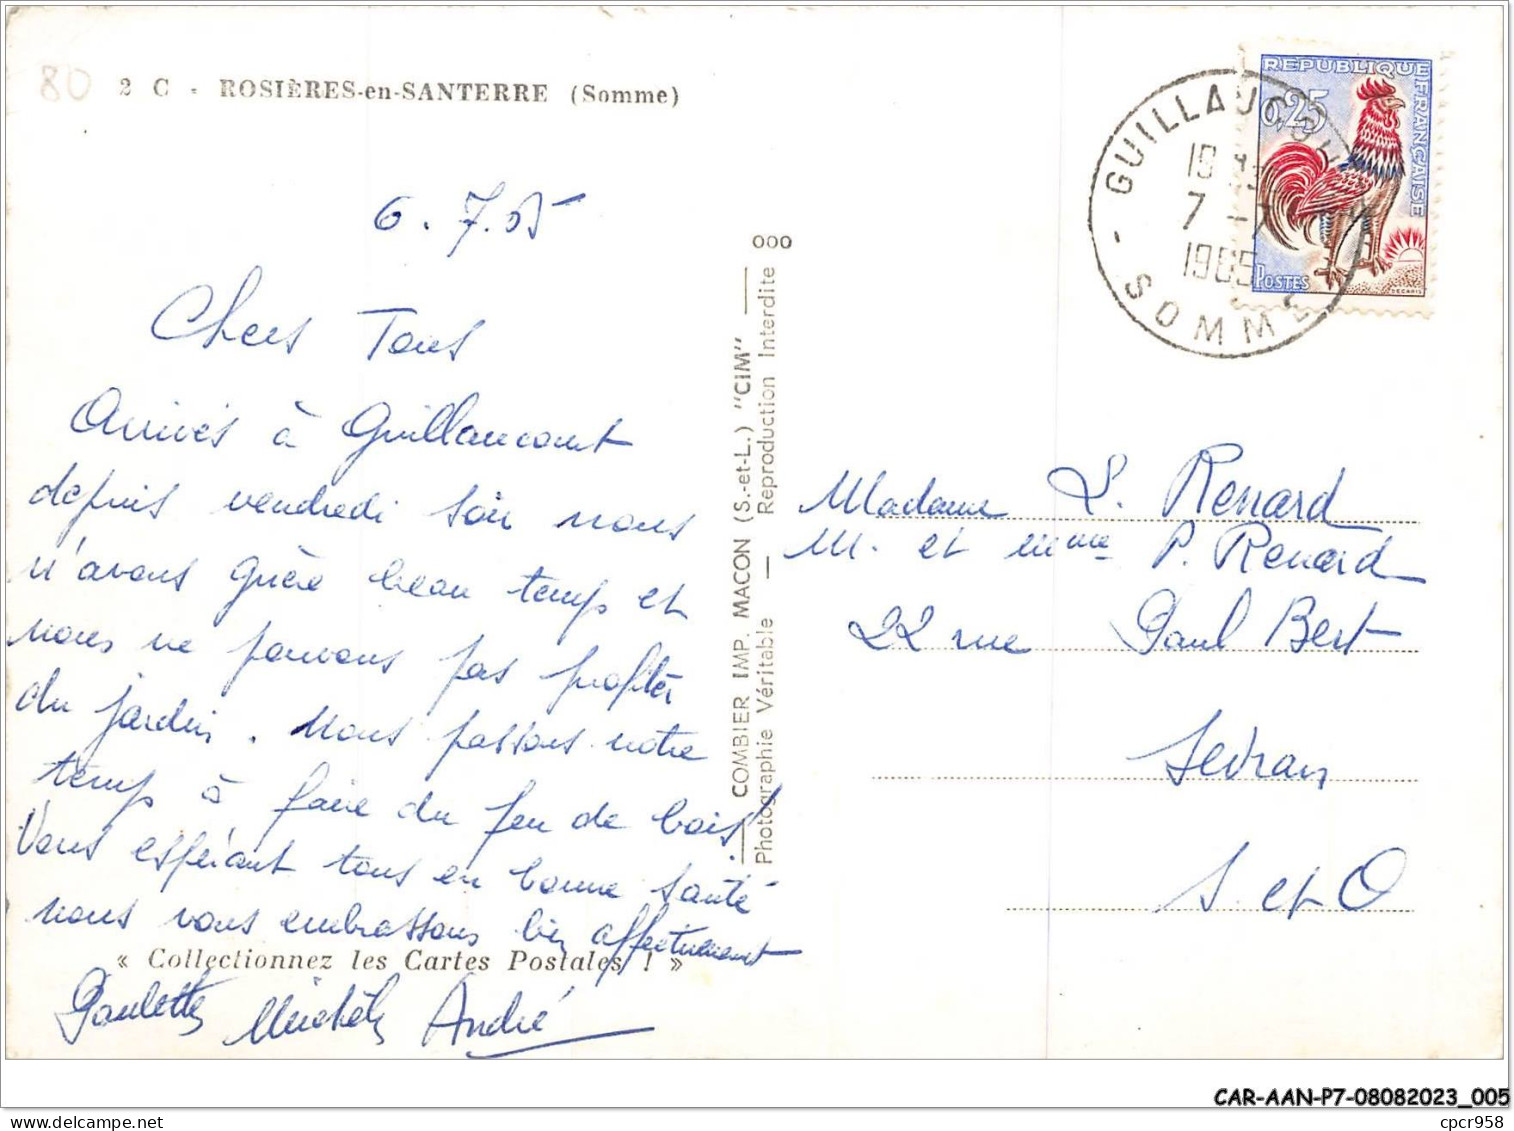 80
2 C - ROSIÈRES-en-SANTERRE (Somme)
6.7.65
Chers Tous
Arrivés à Guillaucourt
depuis vendredi soir nous
n'avons guère beau temps et
nous ne pouvons pas profiter
du jardin. Nous passons notre
temps à faire du feu de bois.
Vous espérant tous en bonne santé
nous vous embrassons bien affectueusement
« Collectionnez les Cartes Postales ! »
Paulette Michèle André
COMBIER IMP. MACON (S.-et-L.) "CIM"
Photographie Véritable — Reproduction Interdite
000
GUILLAUCOURT
7 -7
1965
SOMME
RÉPUBLIQUE FRANÇAISE
0,25
POSTES
DECARIS
Madame L. Renard
M. et Mme P. Renard
22 rue Paul Bert
Sevran
S. et O
CAR-AAN-P7-08082023_005
cpcr958